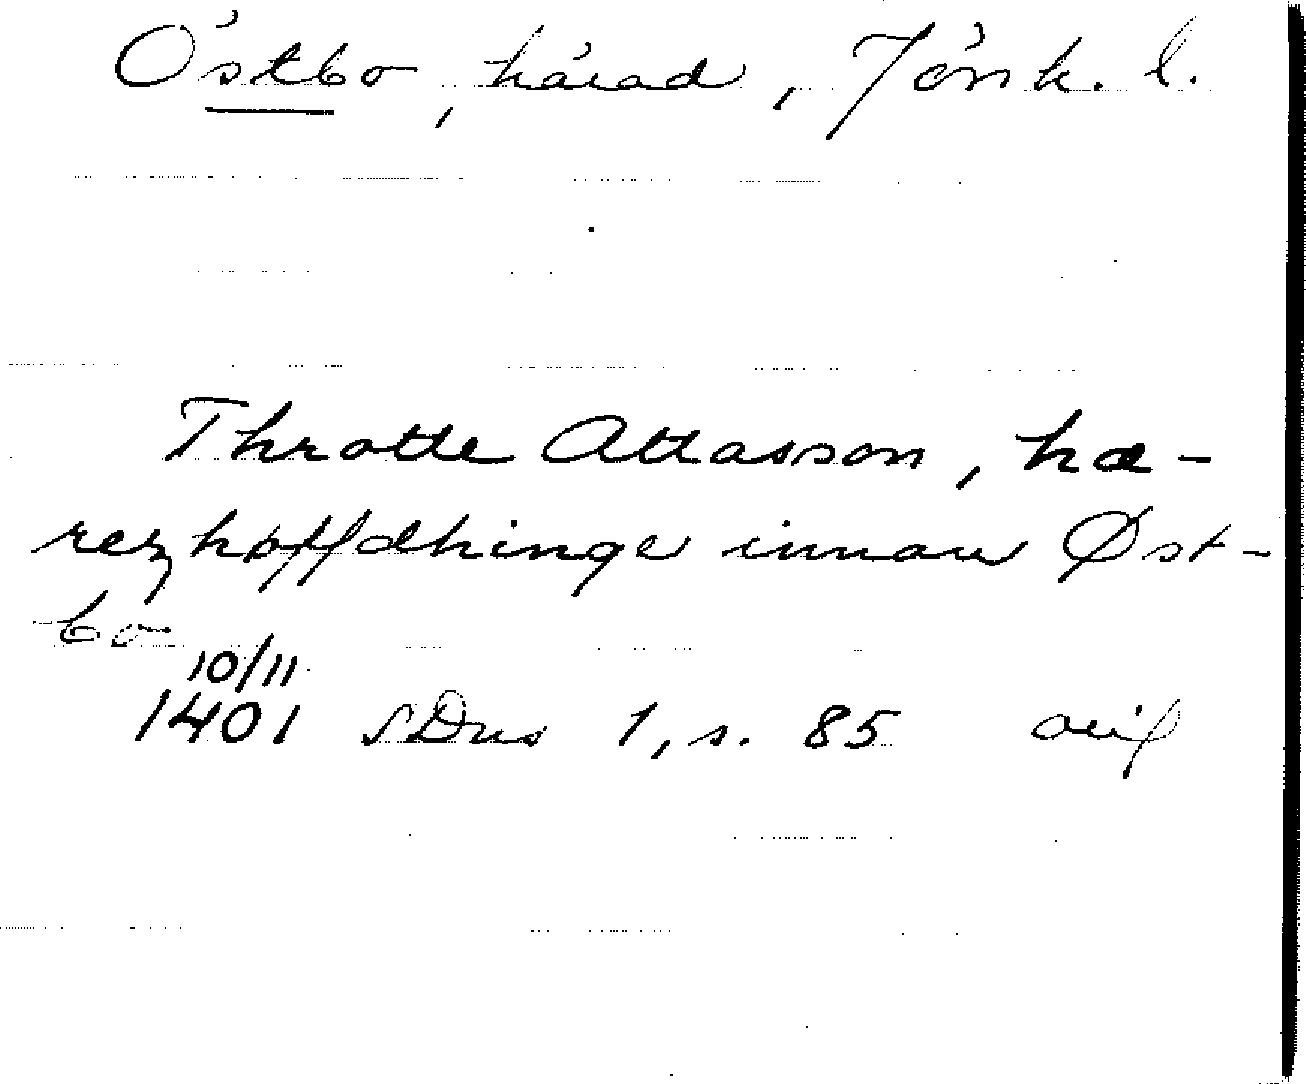 Östbo, härad, Jönk. l.
Throtte Attasson, hæ-
rezhøffdhinge innan Øst-
bo
10/11
1401 SDns 1, s. 85